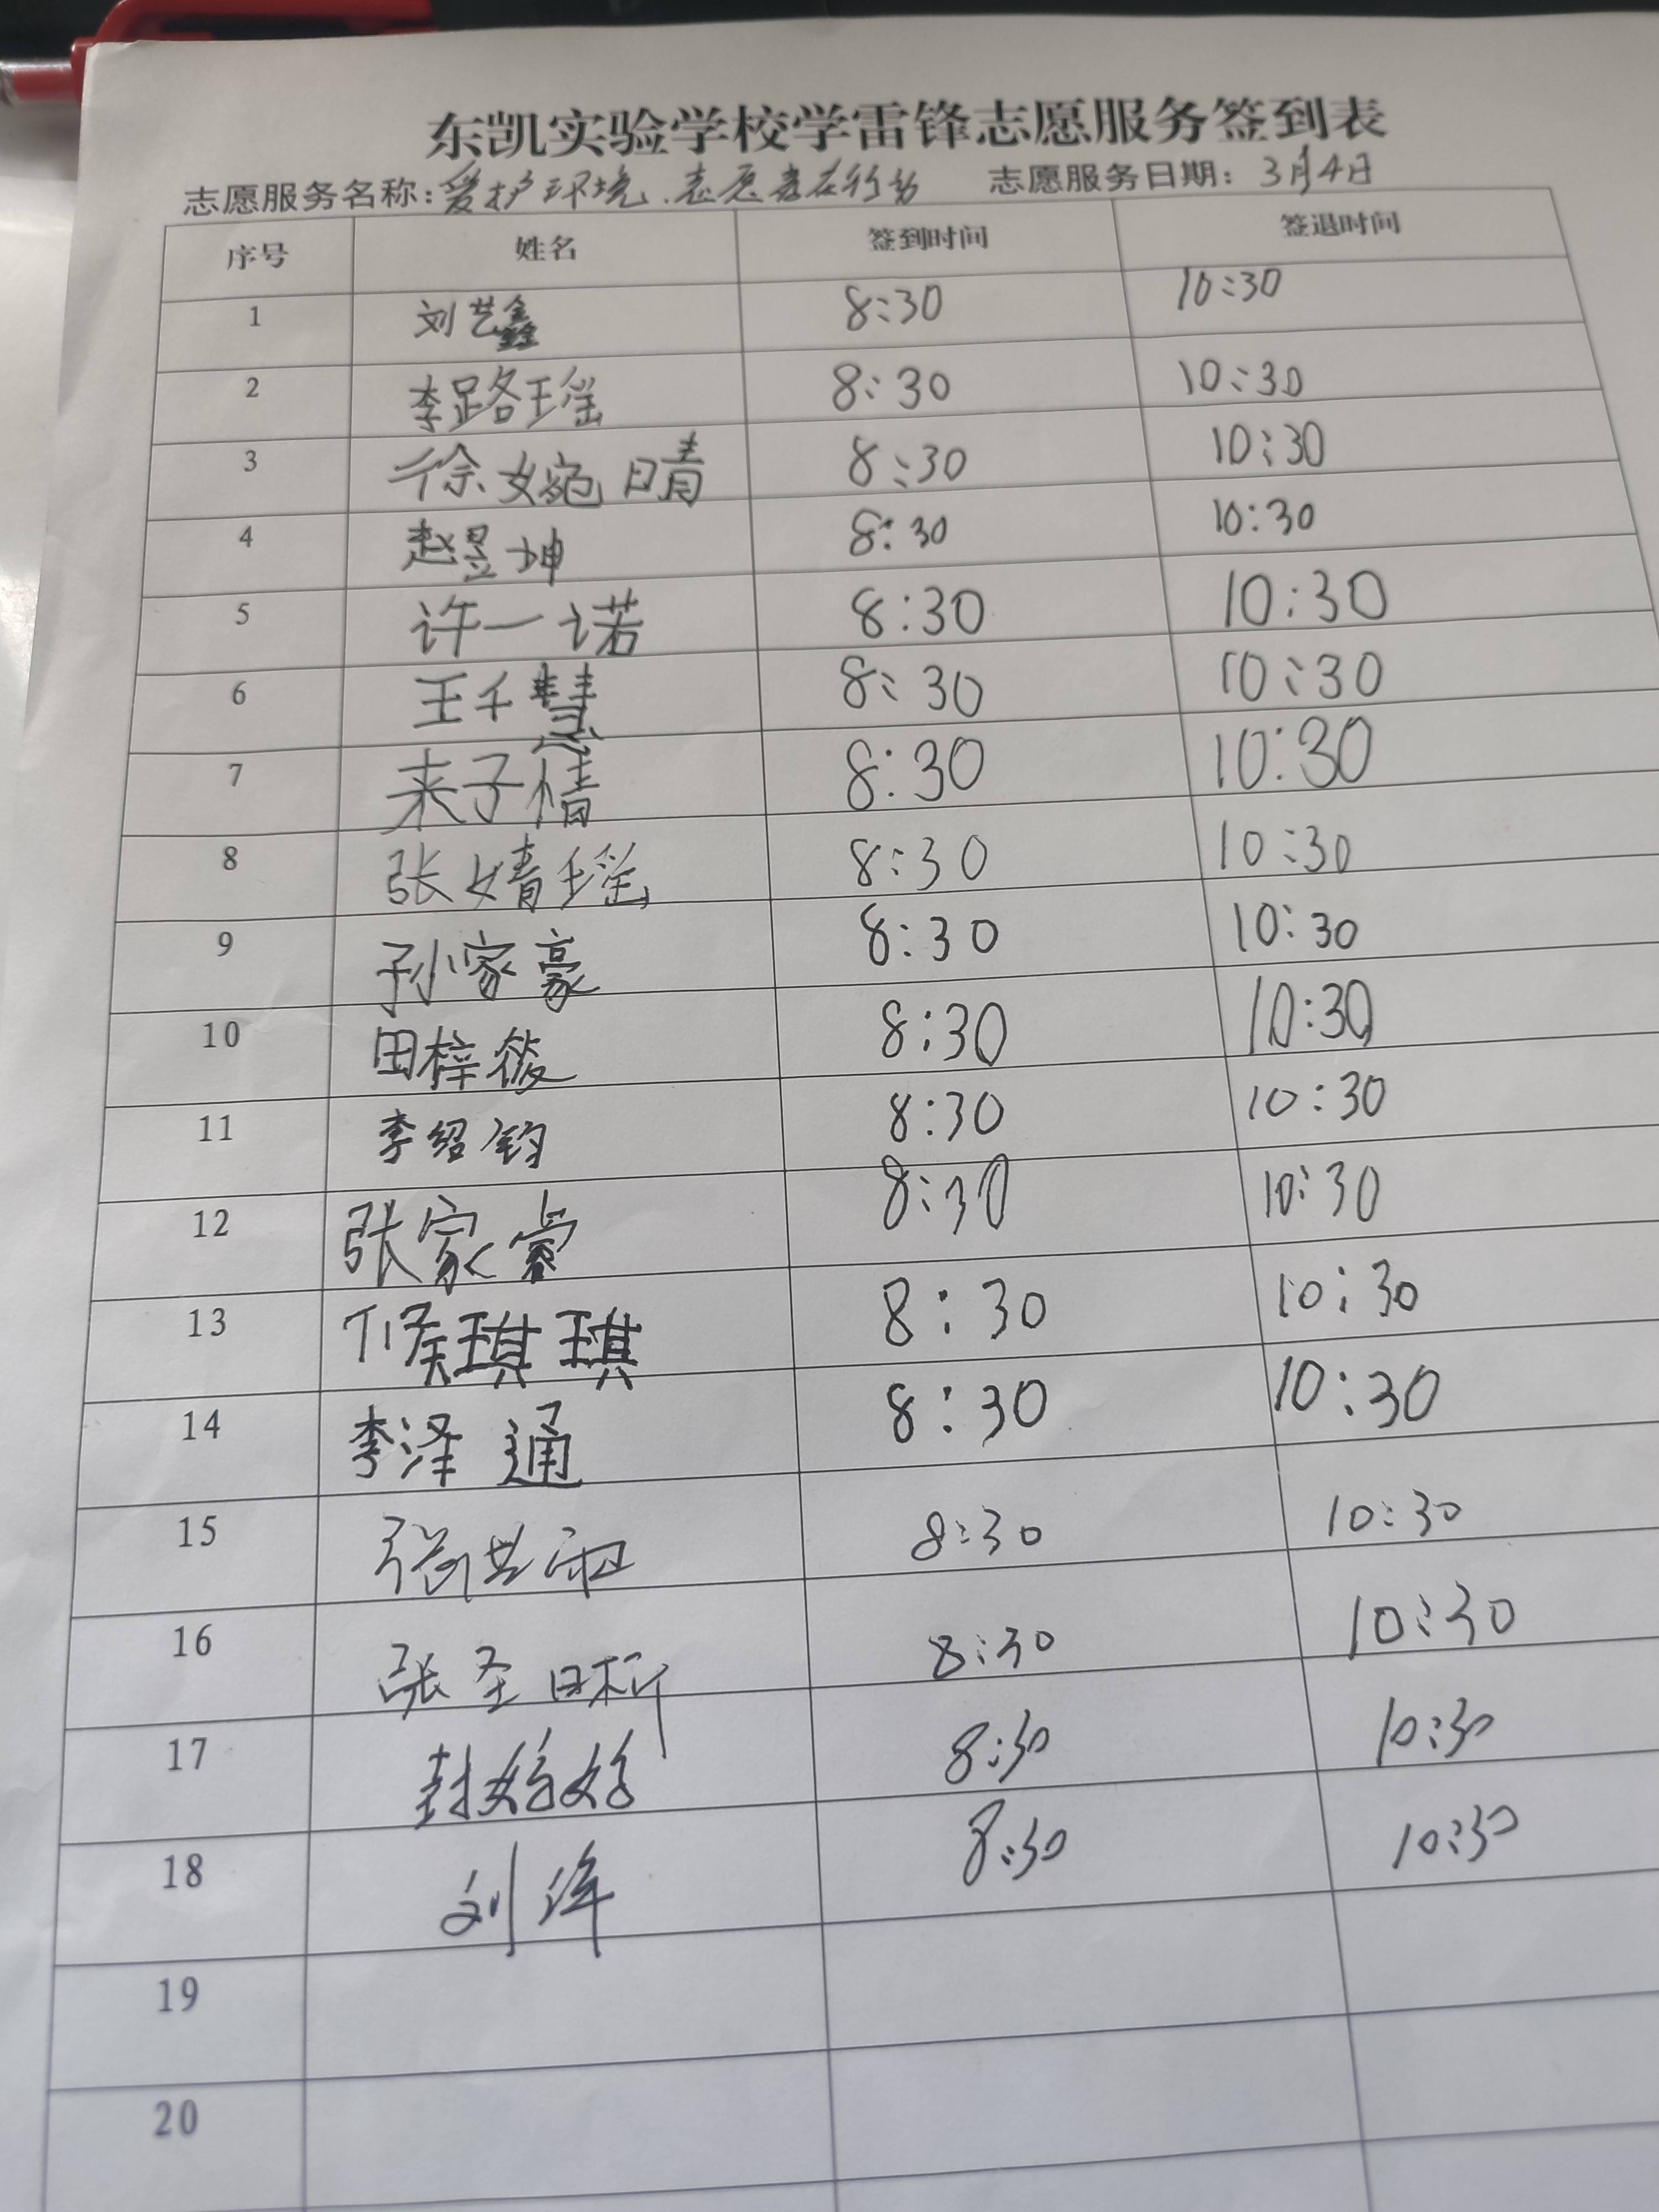 东凯实验学校学雷锋志愿服务签到表
志愿服务名称:爱护环境、志愿者在行动 志愿服务日期:3月4日
序号 姓名 签到时间 签退时间
1 刘艺鑫 8:30 10:30
2 李路瑶 8:30 10:30
3 徐婉晴 8:30 10:30
4 赵昱坤 8:30 10:30
5 许一诺 8:30 10:30
6 王千慧 8:30 10:30
7 来子倩 8:30 10:30
8 张婧瑶 8:30 10:30
9 孙家豪 8:30 10:30
10 田梓筱 8:30 10:30
11 李绍钧 8:30 10:30
12 张家睿 8:30 10:30
13 候琪琪 8:30 10:30
14 李泽通 8:30 10:30
15 张 8:30 10:30
16 张圣晰 8:30 10:30
17 封婷婷 8:30 10:30
18 刘洋 8:30 10:30
19
20